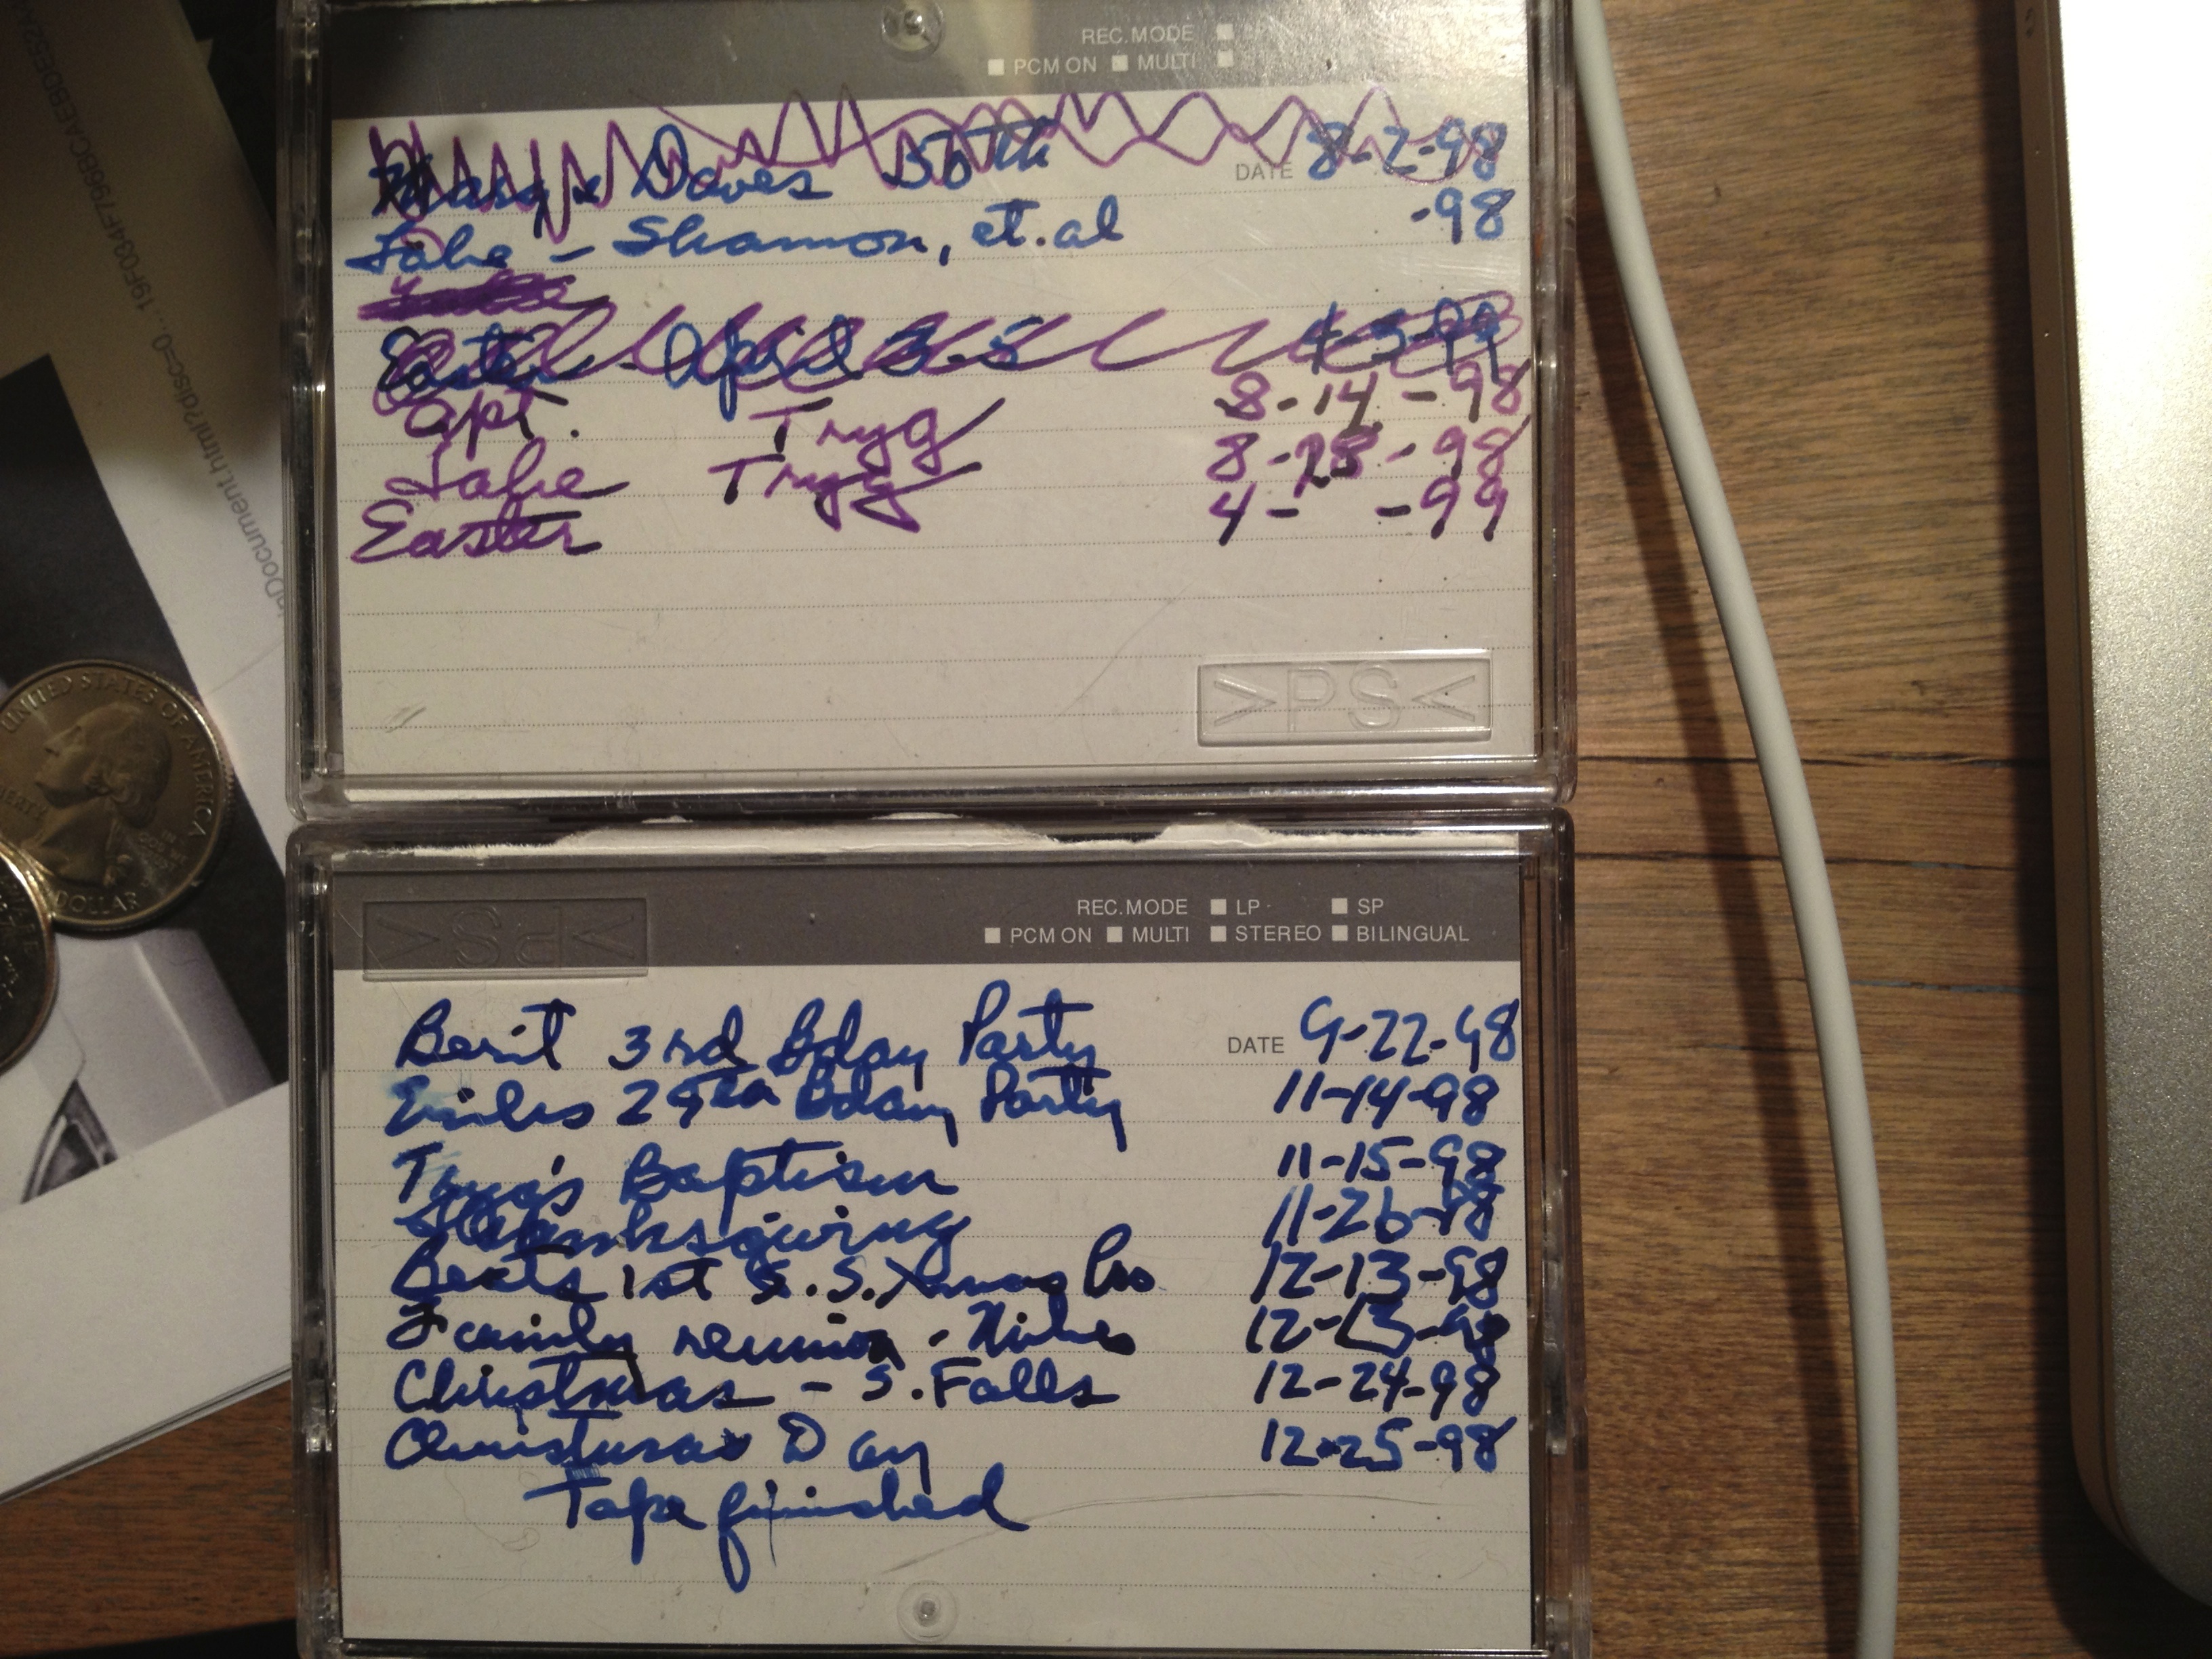 REC.MODE
PCM ON MULTI
Daves 50th DATE 8-2-98
Lake - Shannon, et.al -98
Easter - April 3-5 4-5-99
Apt. Tryg 8-14-98
Lake Tryg 8-28-98
Easter 4- -99
>PS<
UNITED STATES OF AMERICA
LIBERTY
DOLLAR
REC.MODE LP SP
PCM ON MULTI STEREO BILINGUAL
>PS<
Berit 3rd Bday Party DATE 9-22-98
29th Bday Party 11-14-98
Tryg's Baptism 11-15-98
Thanksgiving 11-26-98
1st S.S. Xmas Pro 12-13-98
Family reunion - 12-13-98
Christmas - S. Falls 12-24-98
Christmas Day 12-25-98
Tape finished